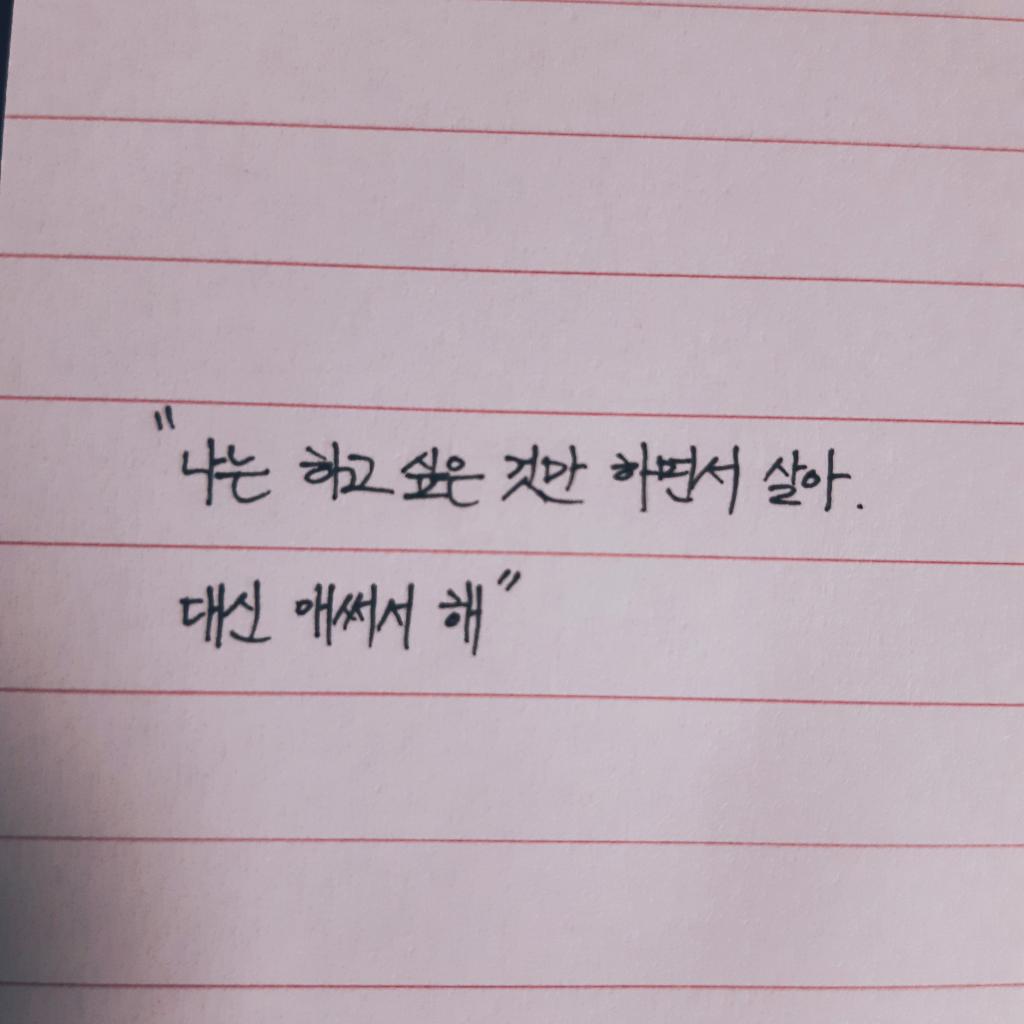 "나는 하고 싶은 것만 하면서 살아.
대신 애써서 해"